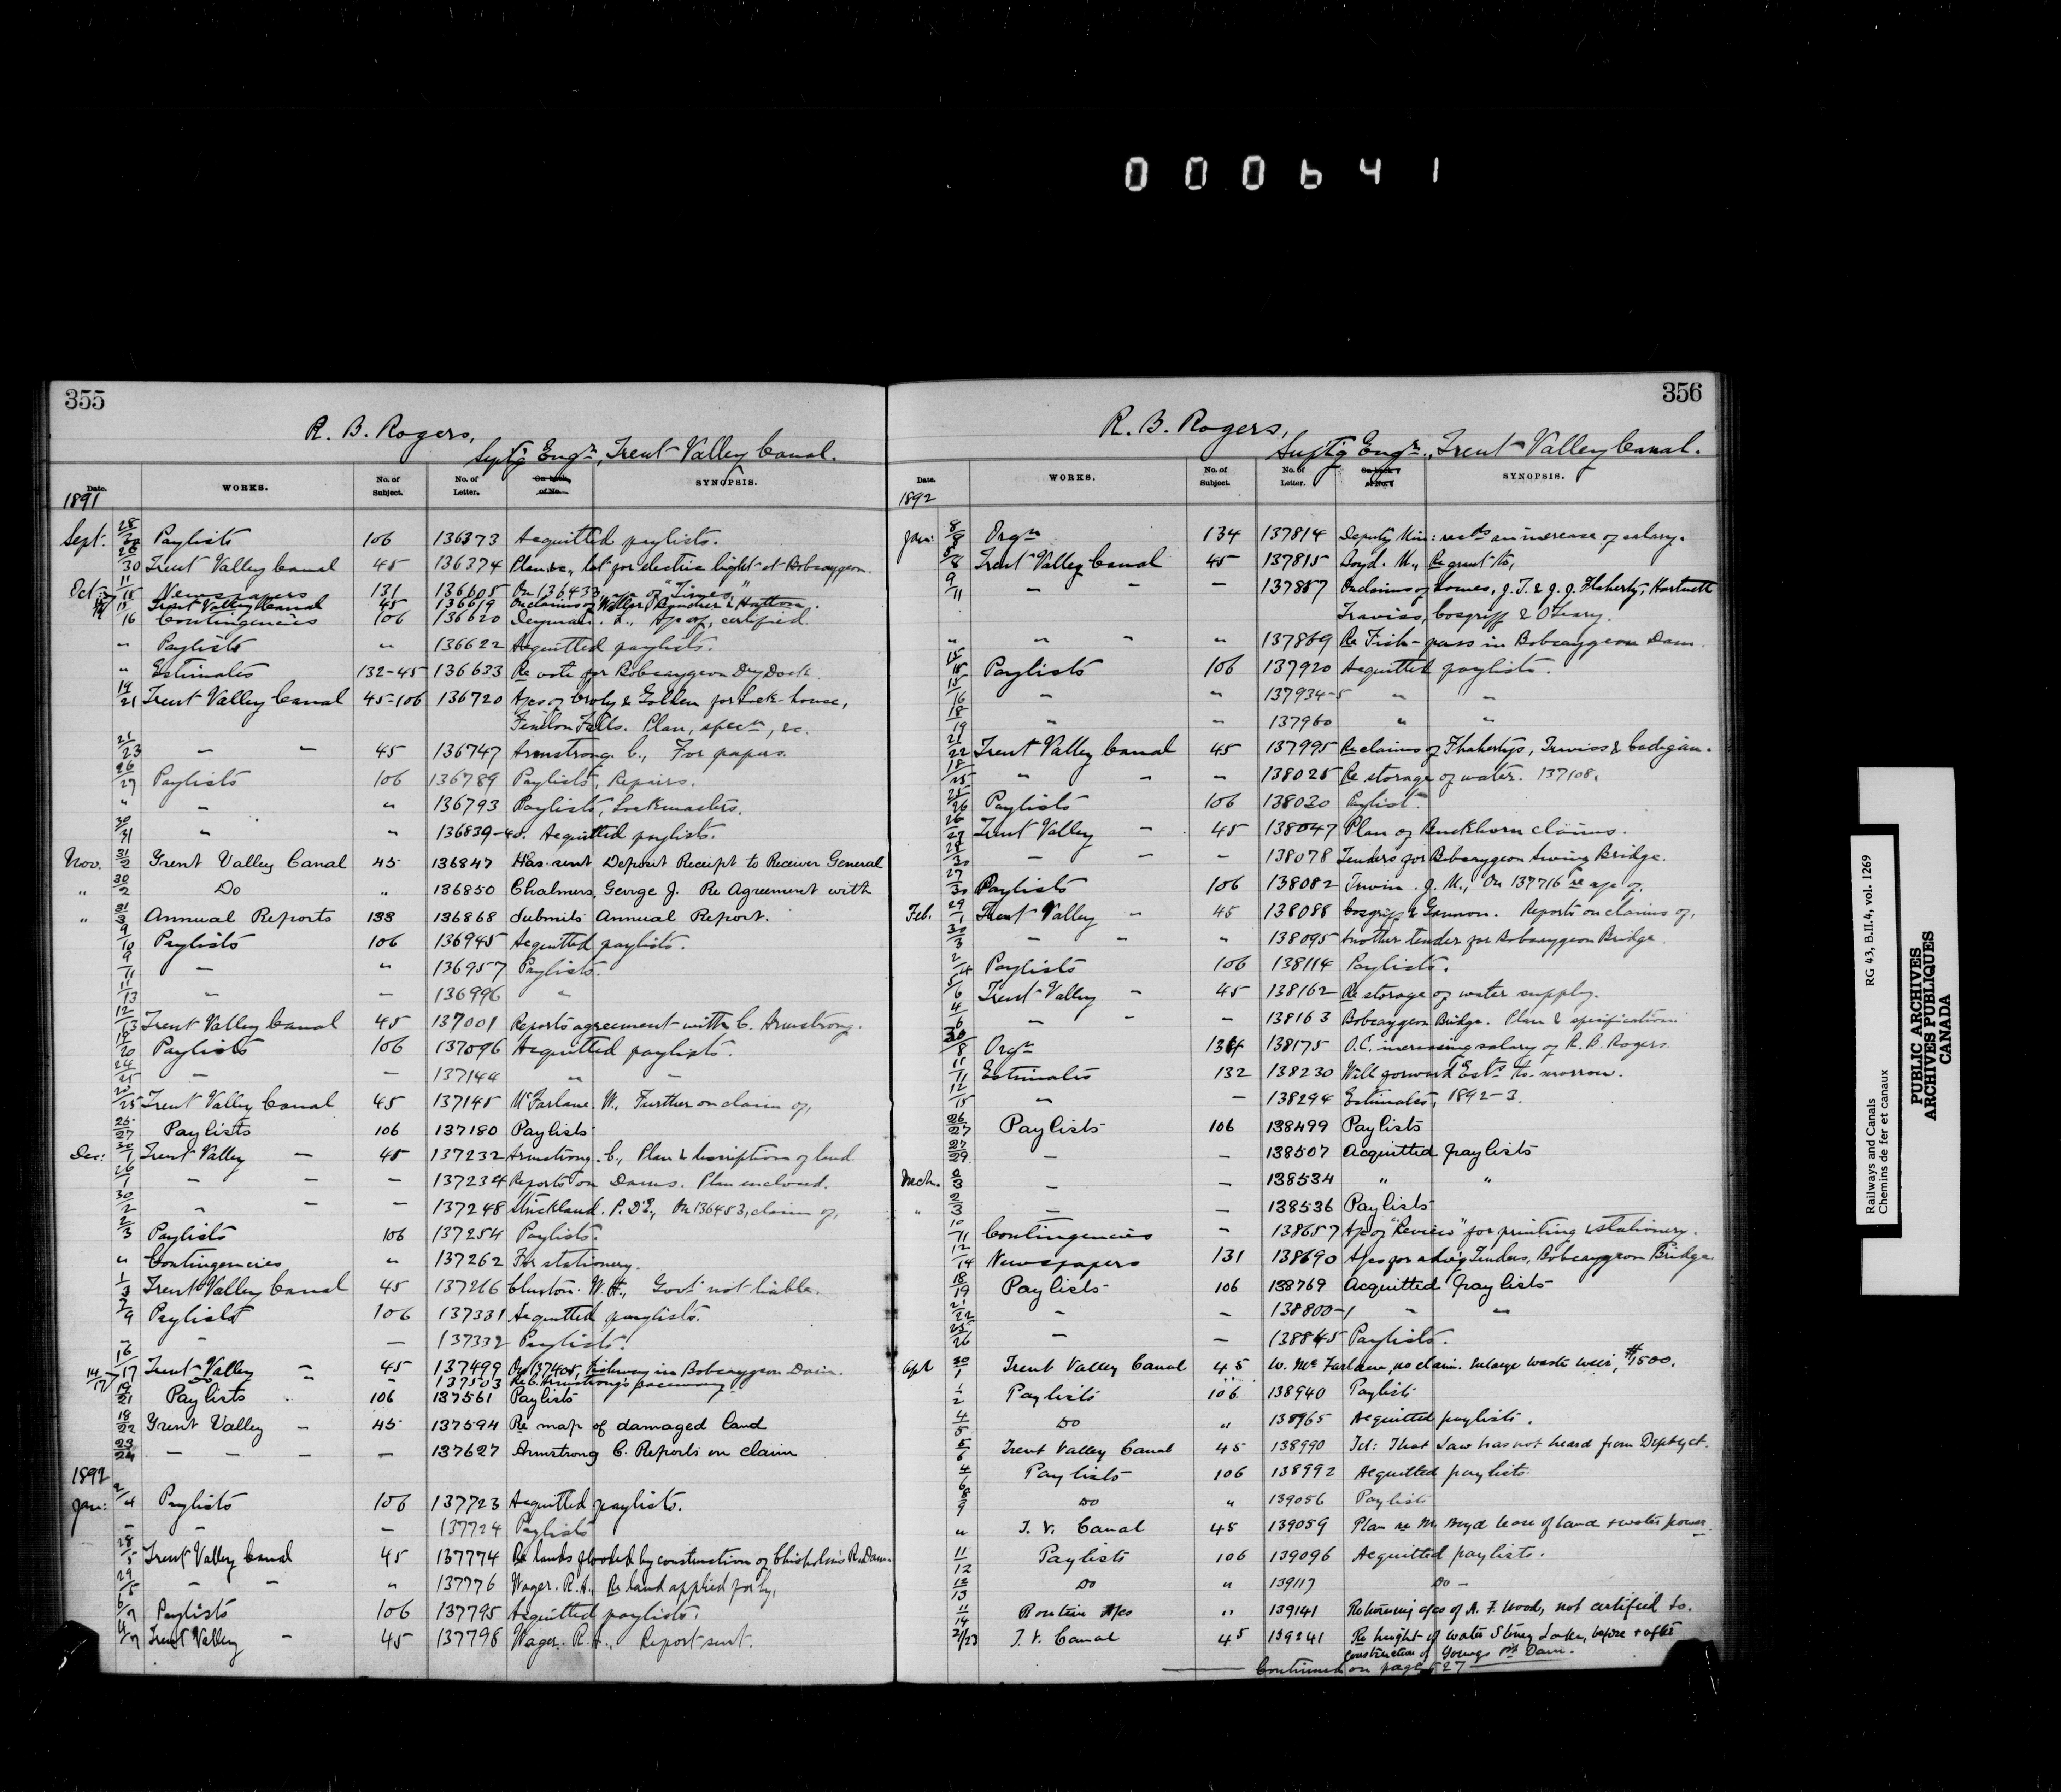 000641
355
R. B. Rogers,
Suptg Engr, Trent Valley Canal.
Date. WORKS. No. of Subject. No. of Letter. On back of No. SYNOPSIS.
1891
Sept. 28/30 Paylists 106 136373 Acquitted paylists.
28/30 Trent Valley Canal 45 136374 Plan &c., lot for electric light at Bobcaygeon.
Oct. Newspapers 131 136605 On 136433, a/c of "Times"
Trent Valley Canal 45 136619 On claims of
16 Contingencies 106 136620 a/c of, certified.
" Paylists " 136622 Acquitted paylists.
" Estimates 132-45 136633 Re vote for Bobcaygeon Dry Dock.
19/21 Trent Valley Canal 45-106 136720 A/cs of & Golden for Lock-house,
Fenelon Falls. Plan, specn, &c.
21/23 – – 45 136747 Armstrong. C., For papers.
26/27 Paylists 106 136789 Paylists, Repairs.
" – " 136793 Paylists, Lockmasters.
30/31 " " 136839-40. Acquitted paylists.
Nov. 31/2 Trent Valley Canal 45 136847 Has sent Deposit Receipt to Receiver General
" 30/2 Do " 136850 Chalmers, George J. Re Agreement with
" 31/3 Annual Reports 133 136868 Submits Annual Report.
9/10 Paylists 106 136945 Acquitted paylists.
9/11 – " 136957 Paylists.
11/13 – – 136996 "
12/13 Trent Valley Canal 45 137001 Reports agreement with C. Armstrong.
19/20 Paylists 106 137096 Acquitted paylists.
24/25 – – 137144 " –
20/25 Trent Valley Canal 45 137145 McFarlane. W., Further on claim of,
25/27 Paylists 106 137180 Paylists
Dec: 30/1 Trent Valley – 45 137232 Armstrong. C., Plan & description of land.
26/1 – – – 137234 Reports on Dams. Plan enclosed.
30/2 – – – 137248 Strickland. P. D'E., On 136453, claim of,
2/3 Paylists 106 137254 Paylists.
" Contingencies " 137262 For stationery.
1/3 Trent Valley Canal 45 137266 Cluxton. W. H., Govt not liable.
7/9 Paylists 106 137331 Acquitted paylists.
– – 137332 Paylists.
16/17 Trent Valley – 45 137499 On 137405, Fishway in Bobcaygeon Dam.
14/17 Do " – 137503 Re C. Armstrong's raceway
19/21 Paylists 106 137561 Paylists
18/22 Trent Valley – 45 137594 Re map of damaged land
23/24 – – – 137627 Armstrong C. Reports on claim
1892
Jan: 2/4 Paylists 106 137723 Acquitted paylists.
– – – 137724 Paylists
28/5 Trent Valley Canal 45 137774 Re lands flooded by construction of Chisholm's R. Dam.
29/5 – – " 137776 Wager. R. A., Re land applied for by,
6/7 Paylists 106 137795 Acquitted paylists.
4/7 Trent Valley – 45 137798 Wager. R. A., Report sent.
356
R. B. Rogers,
Suptg Engr., Trent Valley Canal.
Date. WORKS. No. of Subject. No. of Letter. On back of No. SYNOPSIS.
1892
Jan: 8/8 Orgn 134 137814 Deputy Min: recds an increase of salary.
8/8 Trent Valley Canal 45 137815 Boyd. M., Re grant to,
9/11 – – – 137857 On claims of J. T. & J. J. Flaherty, Hartnett
Traviss, Cosgriff & O'Leary.
" " " " 137869 Re Fish-pass in Bobcaygeon Dam.
15/15 Paylists 106 137920 Acquitted paylists.
15/16 " " 137934-5 " "
18/19 " " 137960 " "
21/22 Trent Valley Canal 45 137995 Re claims of Flahertys, Traviss & Cadigan.
18/25 " – " 138025 Re storage of water. 137108.
25/26 Paylists 106 138030 Paylists.
26/27 Trent Valley – 45 138047 Plan of Buckhorn claims.
27/30 – – – 138078 Tenders for Bobcaygeon Swing Bridge.
27/30 Paylists 106 138082 Irwin. J. M., On 137716 re a/c of.
Feb. 29/1 Trent Valley – 45 138088 Cosgriff & Gannon. Reports on claims of,
30/3 – – " 138095 Another tender for Bobcaygeon Bridge.
2/4 Paylists 106 138114 Paylists.
5/6 Trent Valley – 45 138162 Re storage of water supply.
4/6 – – – 138163 Bobcaygeon Bridge. Plan & specification
30/8 Orgn 134 138175 O.C. increasing salary of R. B. Rogers
11/11 Estimates 132 138230 Will forward Ests to-morrow.
12/15 " – 138294 Estimates, 1892-3.
26/27 Paylists 106 138499 Paylists
27/29 – – 138507 Acquitted paylists
Mch. 2/3 – – 138534 " "
" 2/3 – – 138536 Paylists
10/11 Contingencies – 138657 A/c of "Review" for printing & stationery.
12/14 Newspapers 131 138690 A/cs for advtg Tenders, Bobcaygeon Bridge.
18/19 Paylists 106 138769 Acquitted paylists
21/22 – – 138800-1 " "
25/26 – – 138845 Paylists.
Apl 30/1 Trent Valley Canal 45 W. McFarlane, no claim. Enlarge waste weir, $1500.
1/2 Paylists 106 138940 Paylists
4/5 Do " 138965 Acquitted paylists.
5/6 Trent Valley Canal 45 138990 Tel: That Law has not heard from Dept yet.
4/6 Paylists 106 138992 Acquitted paylists.
8/9 Do " 139056 Paylists
" T. V. Canal 45 139059 Plan re M. Boyd lease of land & water power
11/12 Paylists 106 139096 Acquitted paylists.
12/13 Do " 139117 Do –
11/14 Routine A/cs " 139141 Returning a/cs of A. F. Wood, not certified to.
21/23 T. V. Canal 45 139241 Re height of water Stoney Lake, before & after
construction of Youngs Pt Dam.
Continued on page 527
Railways and Canals RG 43, B.II.4, vol. 1269
Chemins de fer et canaux
PUBLIC ARCHIVES
ARCHIVES PUBLIQUES
CANADA